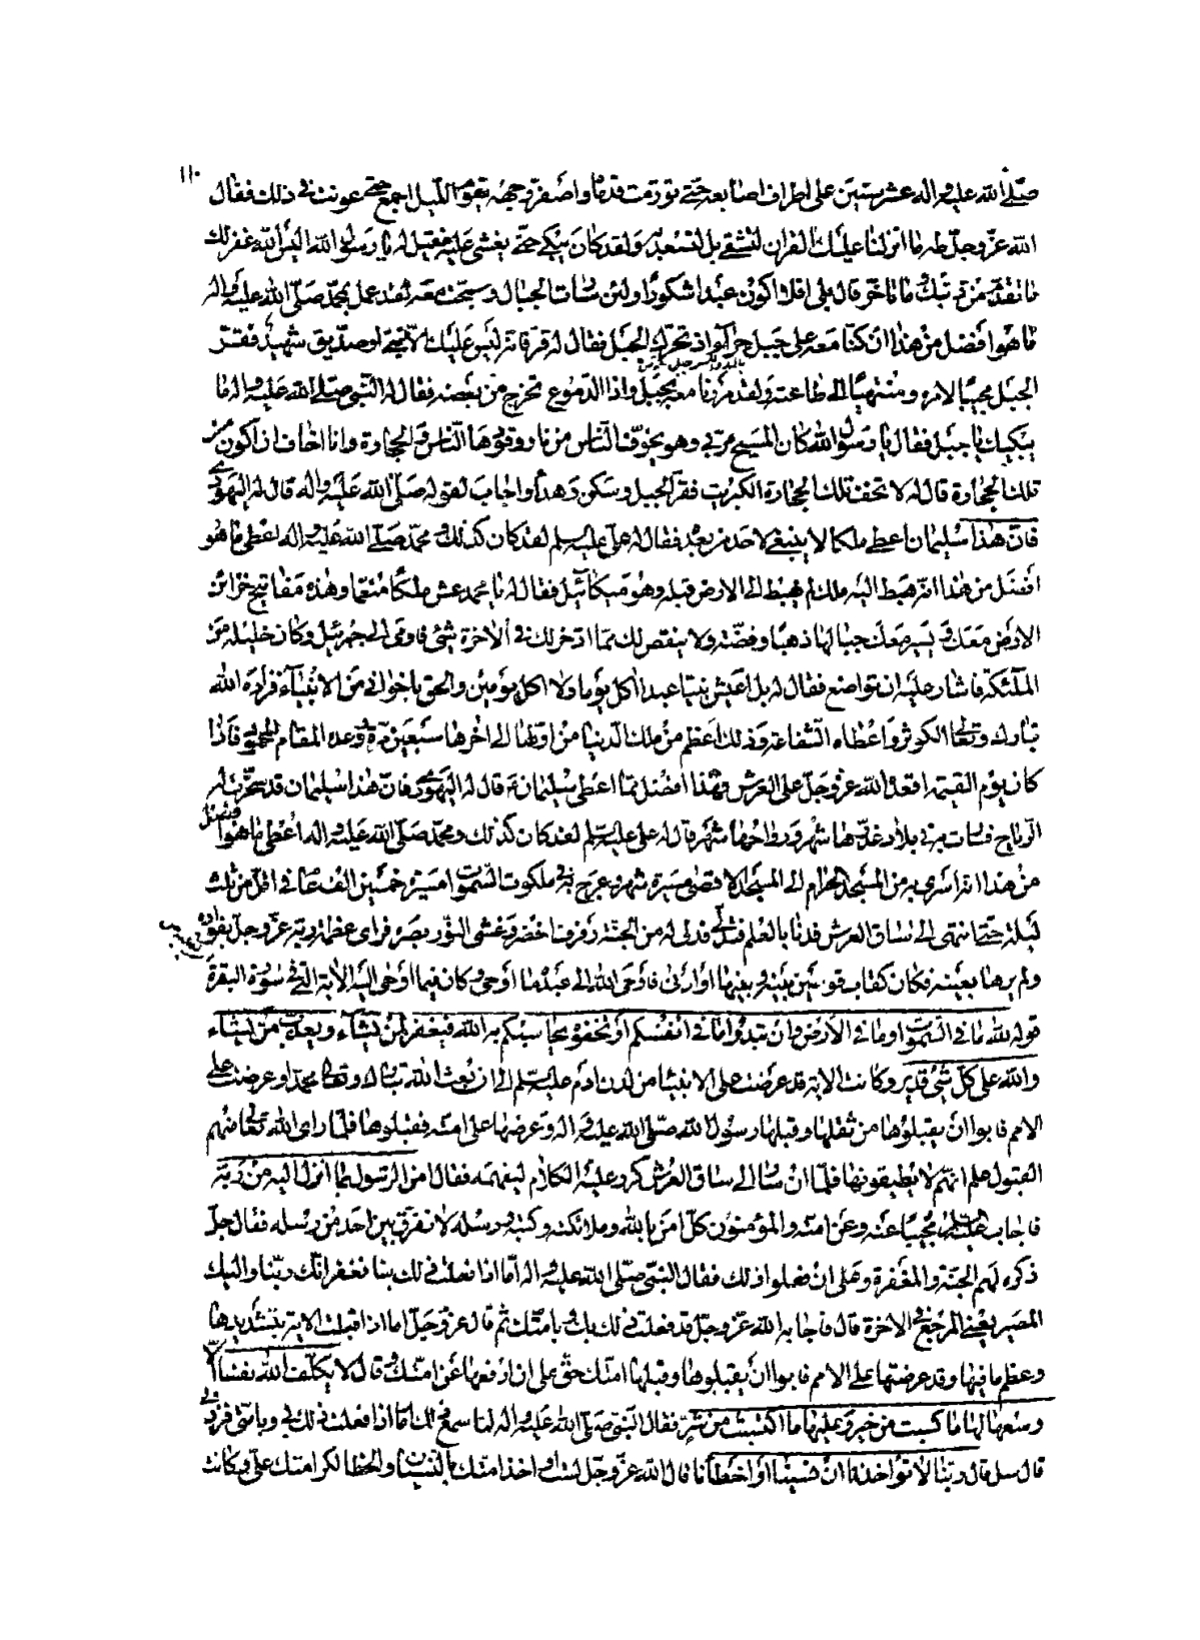 ١١٠
صلّى الله عليه واله عشر سنين على اطراف اصابعه حتى تورمت قدماه واصفرّ وجهه يقوم اللّيل اجمع حتى عوتب في ذلك فقال
الله عزّ وجلّ طه ما انزلنا عليك القران لتشقى بل لتسعد به ولقد كان يبكى حتى يغشى عليه فقيل له يا رسول الله اليس الله غفر لك
ما تقدّم من ذنبك وما تاخّر قال بلى افلا اكون عبدا شكورا ولئن سارت الجبال وسبحت معه لقد عمل بمحمّد صلّى الله عليه واله
ما هو افضل من هذا اذ كنّا معه على جبل حراء واذ تحرّك الجبل فقال له قر فانه ليس عليك الّا نبي او صدّيق شهيد فقرّ
الجبل مجيبا لامره ومنتهيا الى طاعته ولقد مررنا معه بجبل واذا الدّموع تخرج من بعضه فقال له النّبي صلّى الله عليه واله ما
يبكيك يا جبل فقال يا رسول الله كان المسيح مرّ بي وهو يخوّف النّاس من نار وقودها النّاس والحجارة وانا اخاف ان اكون من
تلك الحجارة قال له لا تخف تلك الحجارة الكبريت فقرّ الجبل وسكن وهدأ واجاب لقوله صلّى الله عليه واله قال له اليهودي
فانّ هذا سليمان اعطى ملكا لا ينبغى لاحد من بعده فقال له علي عليه السلم لقد كان كذلك ومحمّد صلّى الله عليه واله اعطى ما هو
افضل من هذا انه هبط اليه ملك لم يهبط الى الارض قبله وهو ميكائيل فقال له يا محمد عش ملكا منعّما وهذه مفاتيح خزائن
الارض معك ويسير معك جبالها ذهبا وفضّة ولا ينقص لك ممّا ادّخر لك في الاخرة شئ فاومى الى جبرئيل وكان خليله من
الملئكة فاشار عليه ان تواضع فقال له بل اعيش نبيّا عبدا اكل يوما ولا اكل يومين والحق باخواني من الانبياء فزاده الله
تبارك وتعالى الكوثر واعطاه الشّفاعة وذلك اعظم من ملك الدّنيا من اوّلها الى اخرها سبعين مرة ووعده المقام المحمود فاذا
كان يوم القيمة اقعده الله عزّ وجلّ على العرش فهذا افضل ممّا اعطى سليمان ع قال له اليهودي فانّ هذا سليمان قد سخّرت له
الرّياح فسارت به في بلاده غدوّها شهر ورواحها شهر قال له علي عليه السلم لقد كان كذلك ومحمّد صلّى الله عليه واله اعطى ما هو افضل
من هذا انه اسرى به من المسجد الحرام الى المسجد الاقصى مسيرة شهر وعرج به في ملكوت السّموات مسيرة خمسين الف عام في اقلّ من ثلث
ليلة حتى انتهى الى ساق العرش فدنا بالعلم فتدلّى فدلى له من الجنّة رفرف اخضر وغشى النّور بصره فراى عظمة ربّه عزّ وجلّ بفؤاده
ولم يرها بعينه فكان كقاب قوسين بينه وبينها او ادنى فاوحى الله الى عبده ما اوحى وكان فيما اوحى اليه الاية التي في سورة البقرة
قوله لله ما في السّموات وما في الارض وان تبدوا ما في انفسكم او تخفوه يحاسبكم به الله فيغفر لمن يشاء ويعذّب من يشاء
والله على كلّ شئ قدير وكانت الاية قد عرضت على الانبيا من لدن ادم عليه السلم الى ان بعث الله تبارك وتعالى محمدا وعرضت على
الامم فابوا ان يقبلوها من ثقلها وقبلها رسول الله صلّى الله عليه واله وعرضها على امته فقبلوها فلمّا راى الله تعالى منهم
القبول علم انهم لا يطيقونها فلمّا ان سار الى ساق العرش كرر عليه الكلام ليفهمه فقال امن الرّسول بما انزل اليه من ربّه
فاجاب مجيبا عنه وعن امته والمؤمنون كلّ امن بالله وملائكته وكتبه ورسله لا نفرّق بين احد من رسله فقال جلّ
ذكره لهم الجنّة والمغفرة وعلى ان فعلوا ذلك فقال النّبي صلّى الله عليه واله امّا اذا فعلت ذلك بنا فغفرانك ربّنا واليك
المصير يعني المرجع في الاخرة قال فاجابه الله عزّ وجلّ قد فعلت ذلك بك وبامّتك ثم قال عزّ وجلّ اما اذا قبلت الاية بتشديدها
وعظم ما فيها وقد عرضتها على الامم فابوا ان يقبلوها وقبلها امتك حقّ على ان ارفعها عن امتك وقال لا يكلّف الله نفسا الا
وسعها لها ما كسبت من خير وعليها ما اكتسبت من شرّ فقال النّبي صلّى الله عليه واله لما سمع ذلك امّا اذا فعلت ذلك بي وبامتي فزدني
قال سل قال ربّنا لا تؤاخذنا ان نسينا او اخطأنا قال الله عزّ وجلّ لست اواخذ امتك بالنسيان والخطا لكرامتك علي وكانت